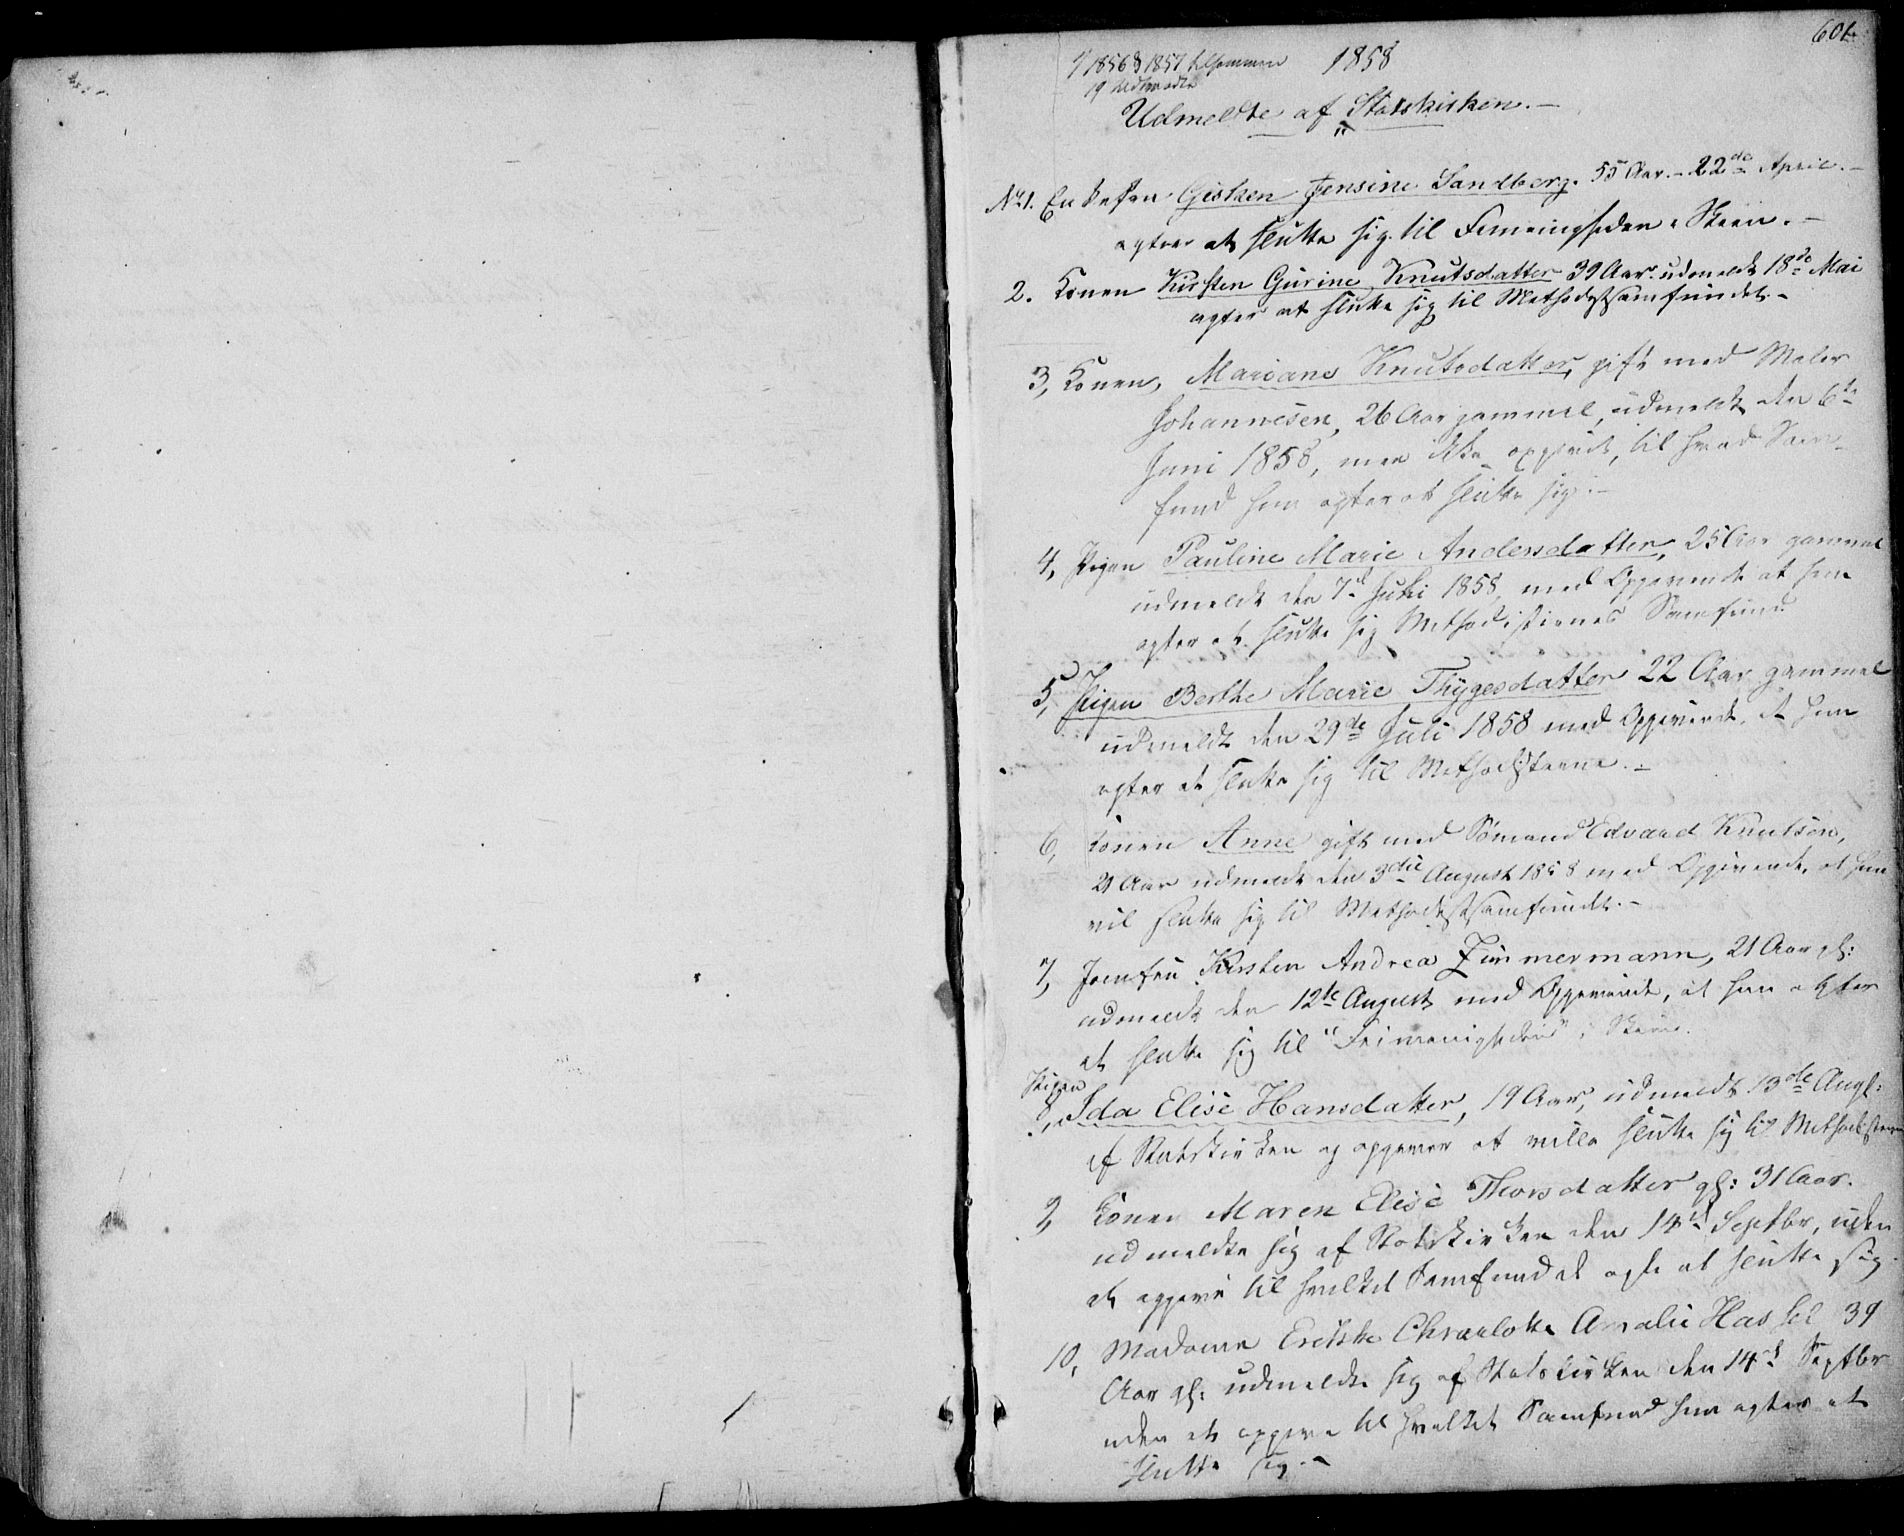 601.
1/ 1856 & 1857 tilsammen 1858
19 Udmeldte
Udmeldte af Statskirken. —
No 1. Enkefru Gisken Jensine Sandberg. 55 Aar. - 22de April. —
agter at slutte sig til Frimenigheden i Skien. —
2. Konen Kirsten Gurine Knutsdatter 39 Aar. udmeldt 18de Mai
agter at slutte sig til Methodistsamfundet. -
3, Konen, Mariane Knutsdatter, gift med Maler
Johannesen, 26 Aar gammel, udmeldt den 6te
Juni 1858, men ikke opgivet, til hvad Sam-
fund hun agter at slutte sig. -
4, Pigen Pauline Marie Andersdatter, 25 Aar gammel
udmeldt den 7de Juli 1858, med Opgivende at hun
agter at slutte sig Methodisternes Samfund
5, Pigen Berthe Marie Thygesdatter 22 Aar gammel
udmeldt den 29de Juli 1858 med Opgivende, at hun
agter at slutte sig til Methodisterne. -
6, Konen Anne gift med Sømand Edvard Knutsen,
21 Aar udmeldt den 3die August 1858 med Opgivende, at hun
vil slutte sig til Methodistsamfundet. -
7, Jomfru Kirsten Andrea Zimmermann, 21 Aar gl:
udmeldt den 12te August med Opgivende, at hun agter
at slutte sig til "Frimenigheden" i Skien.
Pigen
8, Ida Elise Hansdatter, 19 Aar, udmeldt 13de Augt:
af Statskirken og opgiver at ville slutte sig til Methodisterne
9, Konen Maren Elise Thorsdatter gl: 31 Aar.
udmeldte sig af Statskirken den 14de Septbr, uden
at opgive til hvilket Samfund at agte at slutte sig.
10, Madame Charlotte Amalie Hassel 39
Aar gl: udmeldte sig af Statskirken den 14de Septbr
uden at opgive til hvilket Samfund hun agter at
slutte sig. -